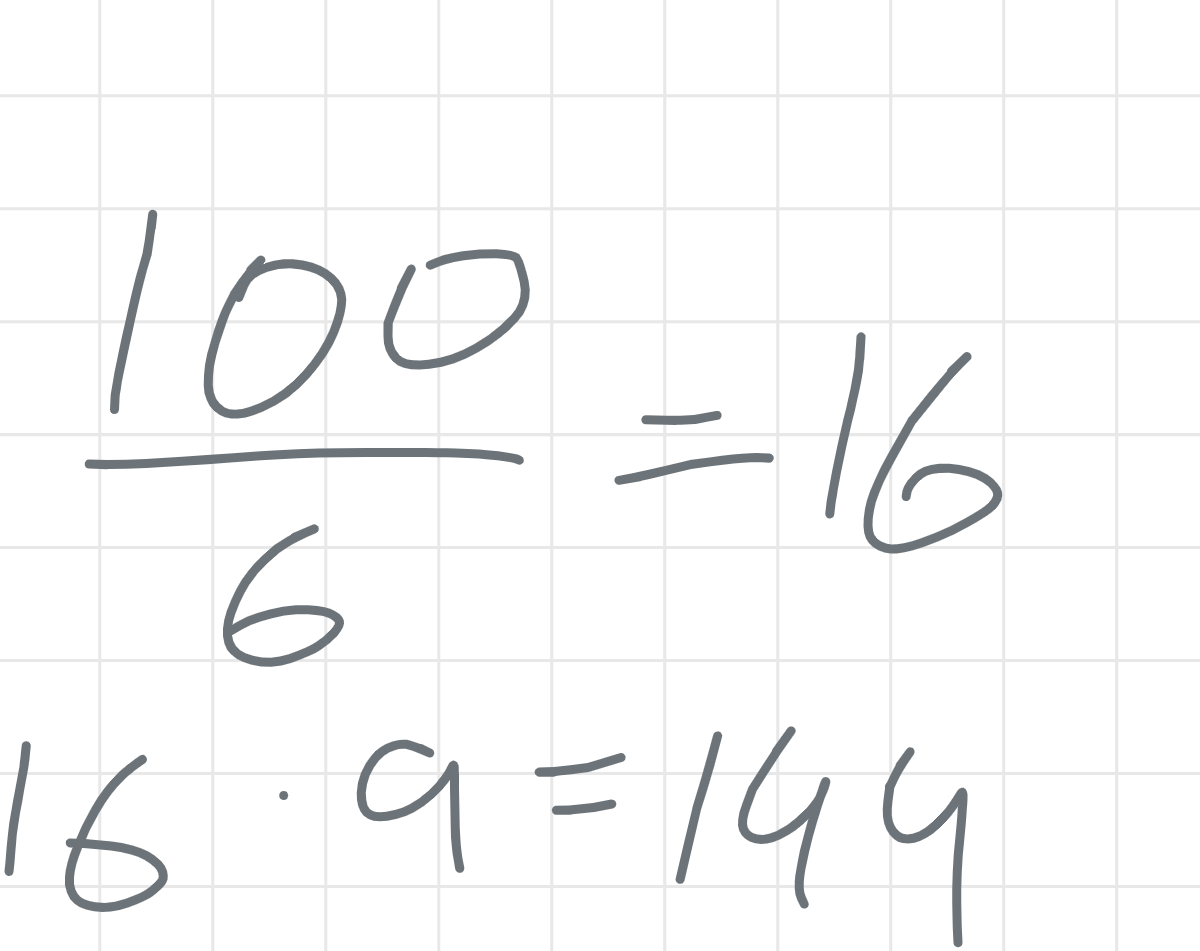 100/6 = 16
16 · 9 = 144